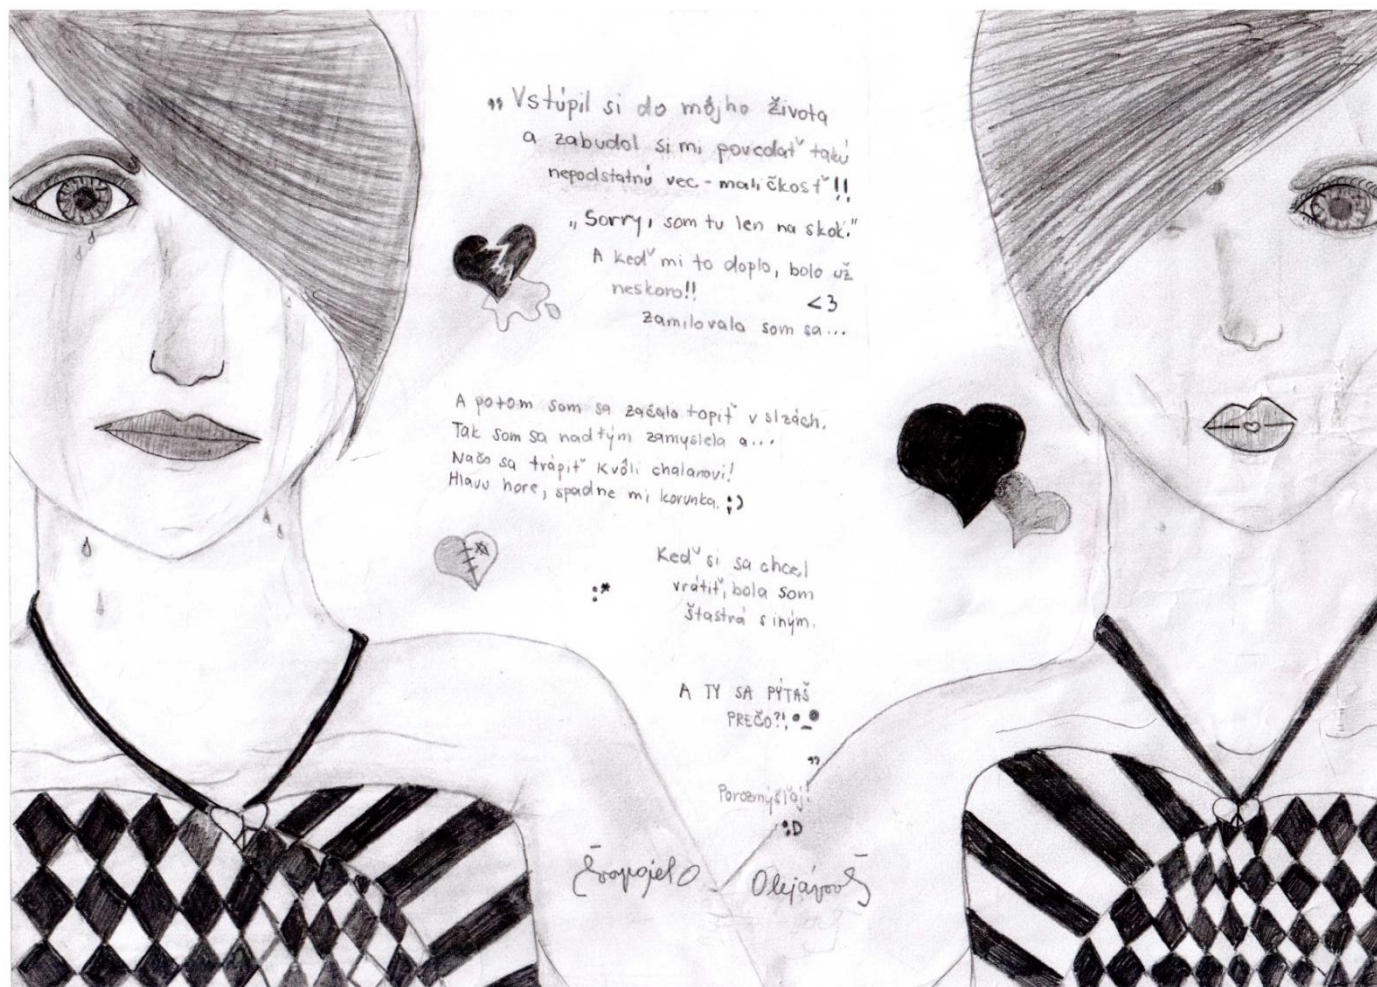 „Vstúpil si do môjho života
a zabudol si mi povedať takú
nepodstatnú vec - maličkosť!!
„Sorry, som tu len na skok."
A keď mi to doplo, bolo už
neskoro!! <3
zamilovala som sa...
A potom som sa začala topiť v slzách.
Tak som sa nad tým zamyslela a...
Načo sa trápiť kvôli chalanovi!
Hlavu hore, spadne mi korunka. ;)
Keď si sa chcel
vrátiť, bola som
:*
šťastná s iným.
A TY SA PÝTAŠ
PREČO?! •_•
"
Porozmýšľaj!
:D